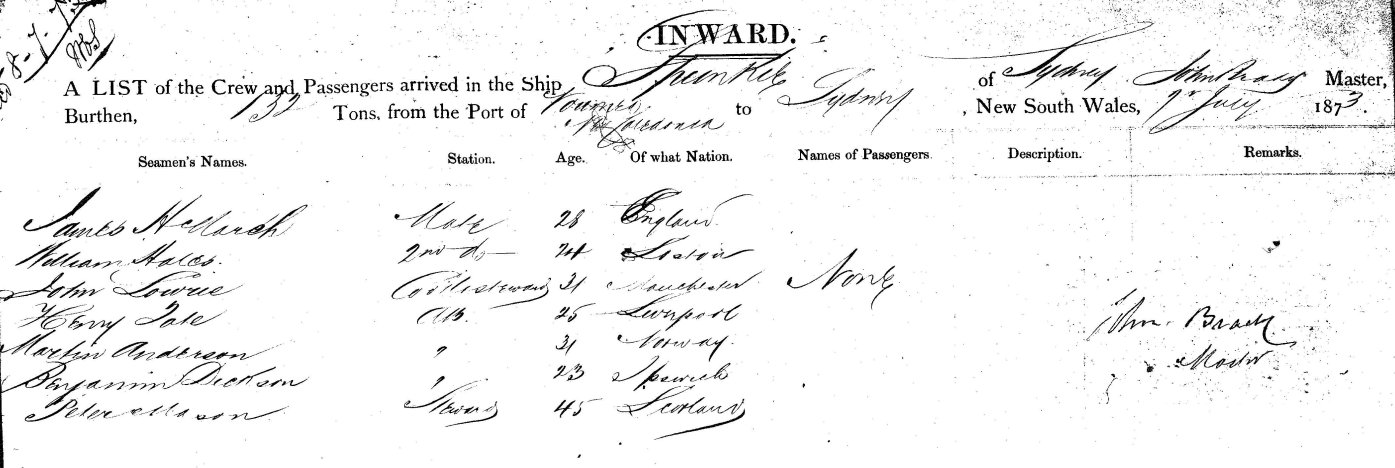 INWARD.
A LIST of the Crew and Passengers arrived in the Ship of Sydney, John Brady Master,
Burthen, 132 Tons, from the Port of Noumea New Caledonia to Sydney, New South Wales, 7th July 1873.
Seamen's Names. Station. Age. Of what Nation. Names of Passengers. Description. Remarks.
James H March Mate 28 England
William Hales. 2nd do 24
John Lowrie Cook & steward 31 Manchester None
Henry Tate AB. 25 Liverpool
Martin Anderson " 31 Norway.
Benjamin Dickson " 23 Ipswich
Peter Mason Steward 45 Scotland
John
Master